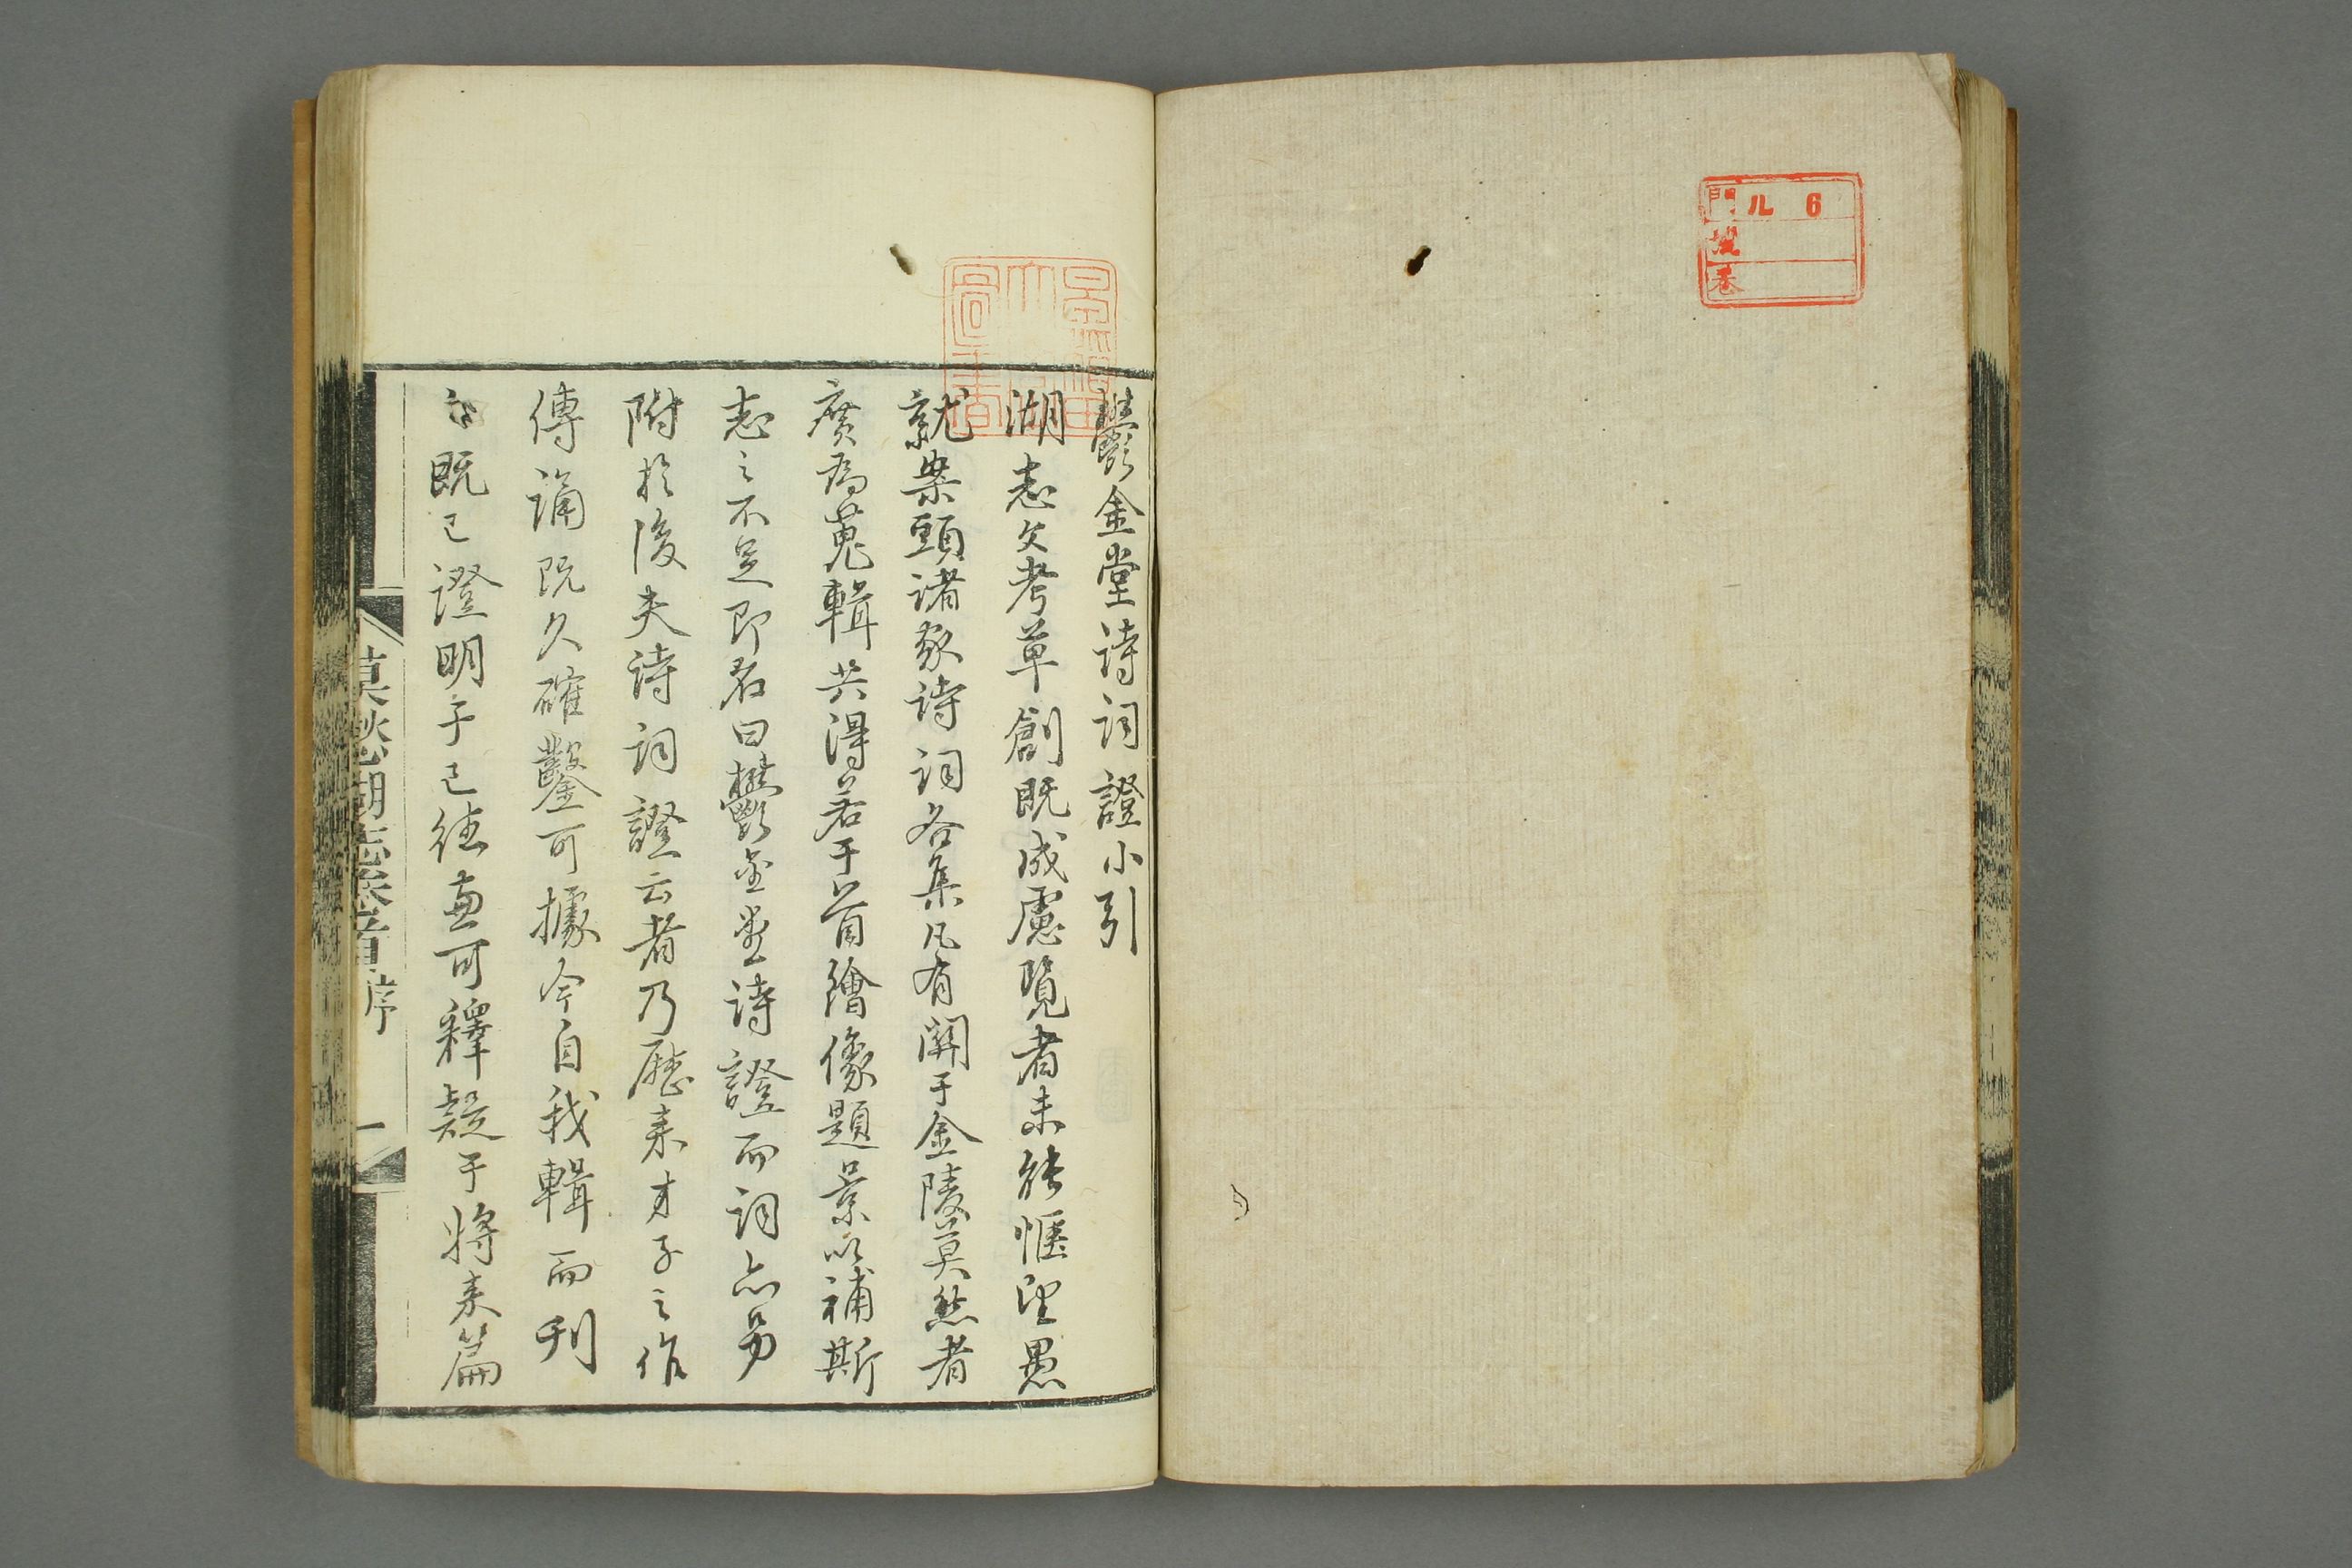 門 ル 6
號
卷
鬱金堂詩詞證小引
湖志文考草創既成慮覽者未能愜望愚
就案頭諸家詩詞各集凡有關于金陵莫愁者
廣為蒐輯共得若干首繪像題景以補斯
志之不足即名曰鬱金堂詩證而詞亦另
附於後夫詩詞證云者乃歷來才子之作
傳誦既久確鑿可據今自我輯而刊
之既已證明于已往直可釋疑于將來篇
莫愁湖志卷首 序 一